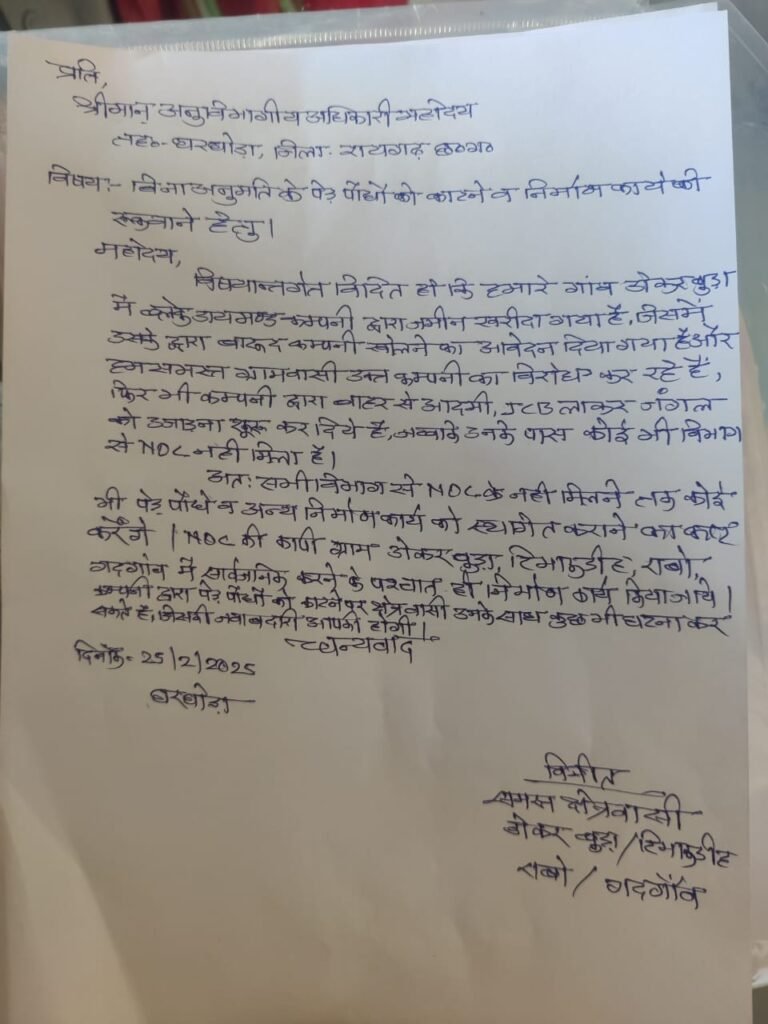 प्रति,
श्रीमान् अनुविभागीय अधिकारी महोदय
तह०- घरघोड़ा, जिला- रायगढ़ छ०ग०
विषय:- बिना अनुमति के पेड़ पौधों को काटने व निर्माण कार्य को
रूकवाने हेतु।
महोदय,
विषयान्तर्गत विदित हो कि हमारे गांव डोकरबुड़ा
में ब्लेक डायमण्ड कम्पनी द्वारा जमीन खरीदा गया है, जिसमें
उसके द्वारा बारूद कम्पनी खोलने का आवेदन दिया गया है और
हम समस्त ग्रामवासी उक्त कम्पनी का विरोध कर रहे हैं,
फिर भी कम्पनी द्वारा बाहर से आदमी, JCB लाकर जंगल
को उजाड़ना शुरू कर दिये है, जबकि उनके पास कोई भी विभाग
से NOC नही मिला है।
अतः सभी विभाग से NOC के नही मिलने तक कोई
भी पेड़ पौधे व अन्य निर्माण कार्य को स्थगित कराने का कष्ट
करेंगे। NOC की कापी ग्राम डोकरबुड़ा, टिमाकुडीह, राबो,
गदगांव में सार्वजनिक करने के पश्चात ही निर्माण कार्य किया जाये।
कम्पनी द्वारा पेड़ पौधों को काटने पर क्षेत्रवासी उनके साथ कुछ भी घटना कर
सकते है, जिसकी जवाबदारी आपकी होगी।
धन्यवाद
दिनाँक- 25/2/2025
घरघोड़ा
विनीत
समस्त क्षेत्रवासी
डोकरबुड़ा/टिमाकुडीह
राबो/ गदगाँव